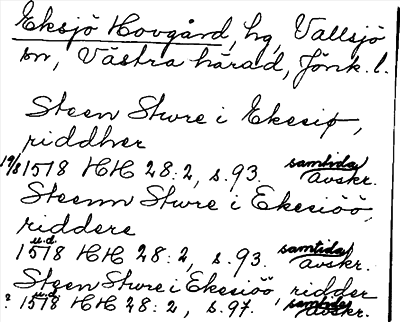 Eksjö Hovgård, hg, Vallsjö
sn, Västra härad, Jönk. l.
Steen Sture i Ekesiø,
riddher
19/8 1518 HH 28:2, s. 93. samtida avskr.
Steenn Sture i Ekesiöö,
riddere
u.d. 1518 HH 28:2, s. 93. samtida avskr.
Steen Sture i Ekesiöö, ridder
? u.d. 1518 HH 28:2, s. 97. samtida avskr.